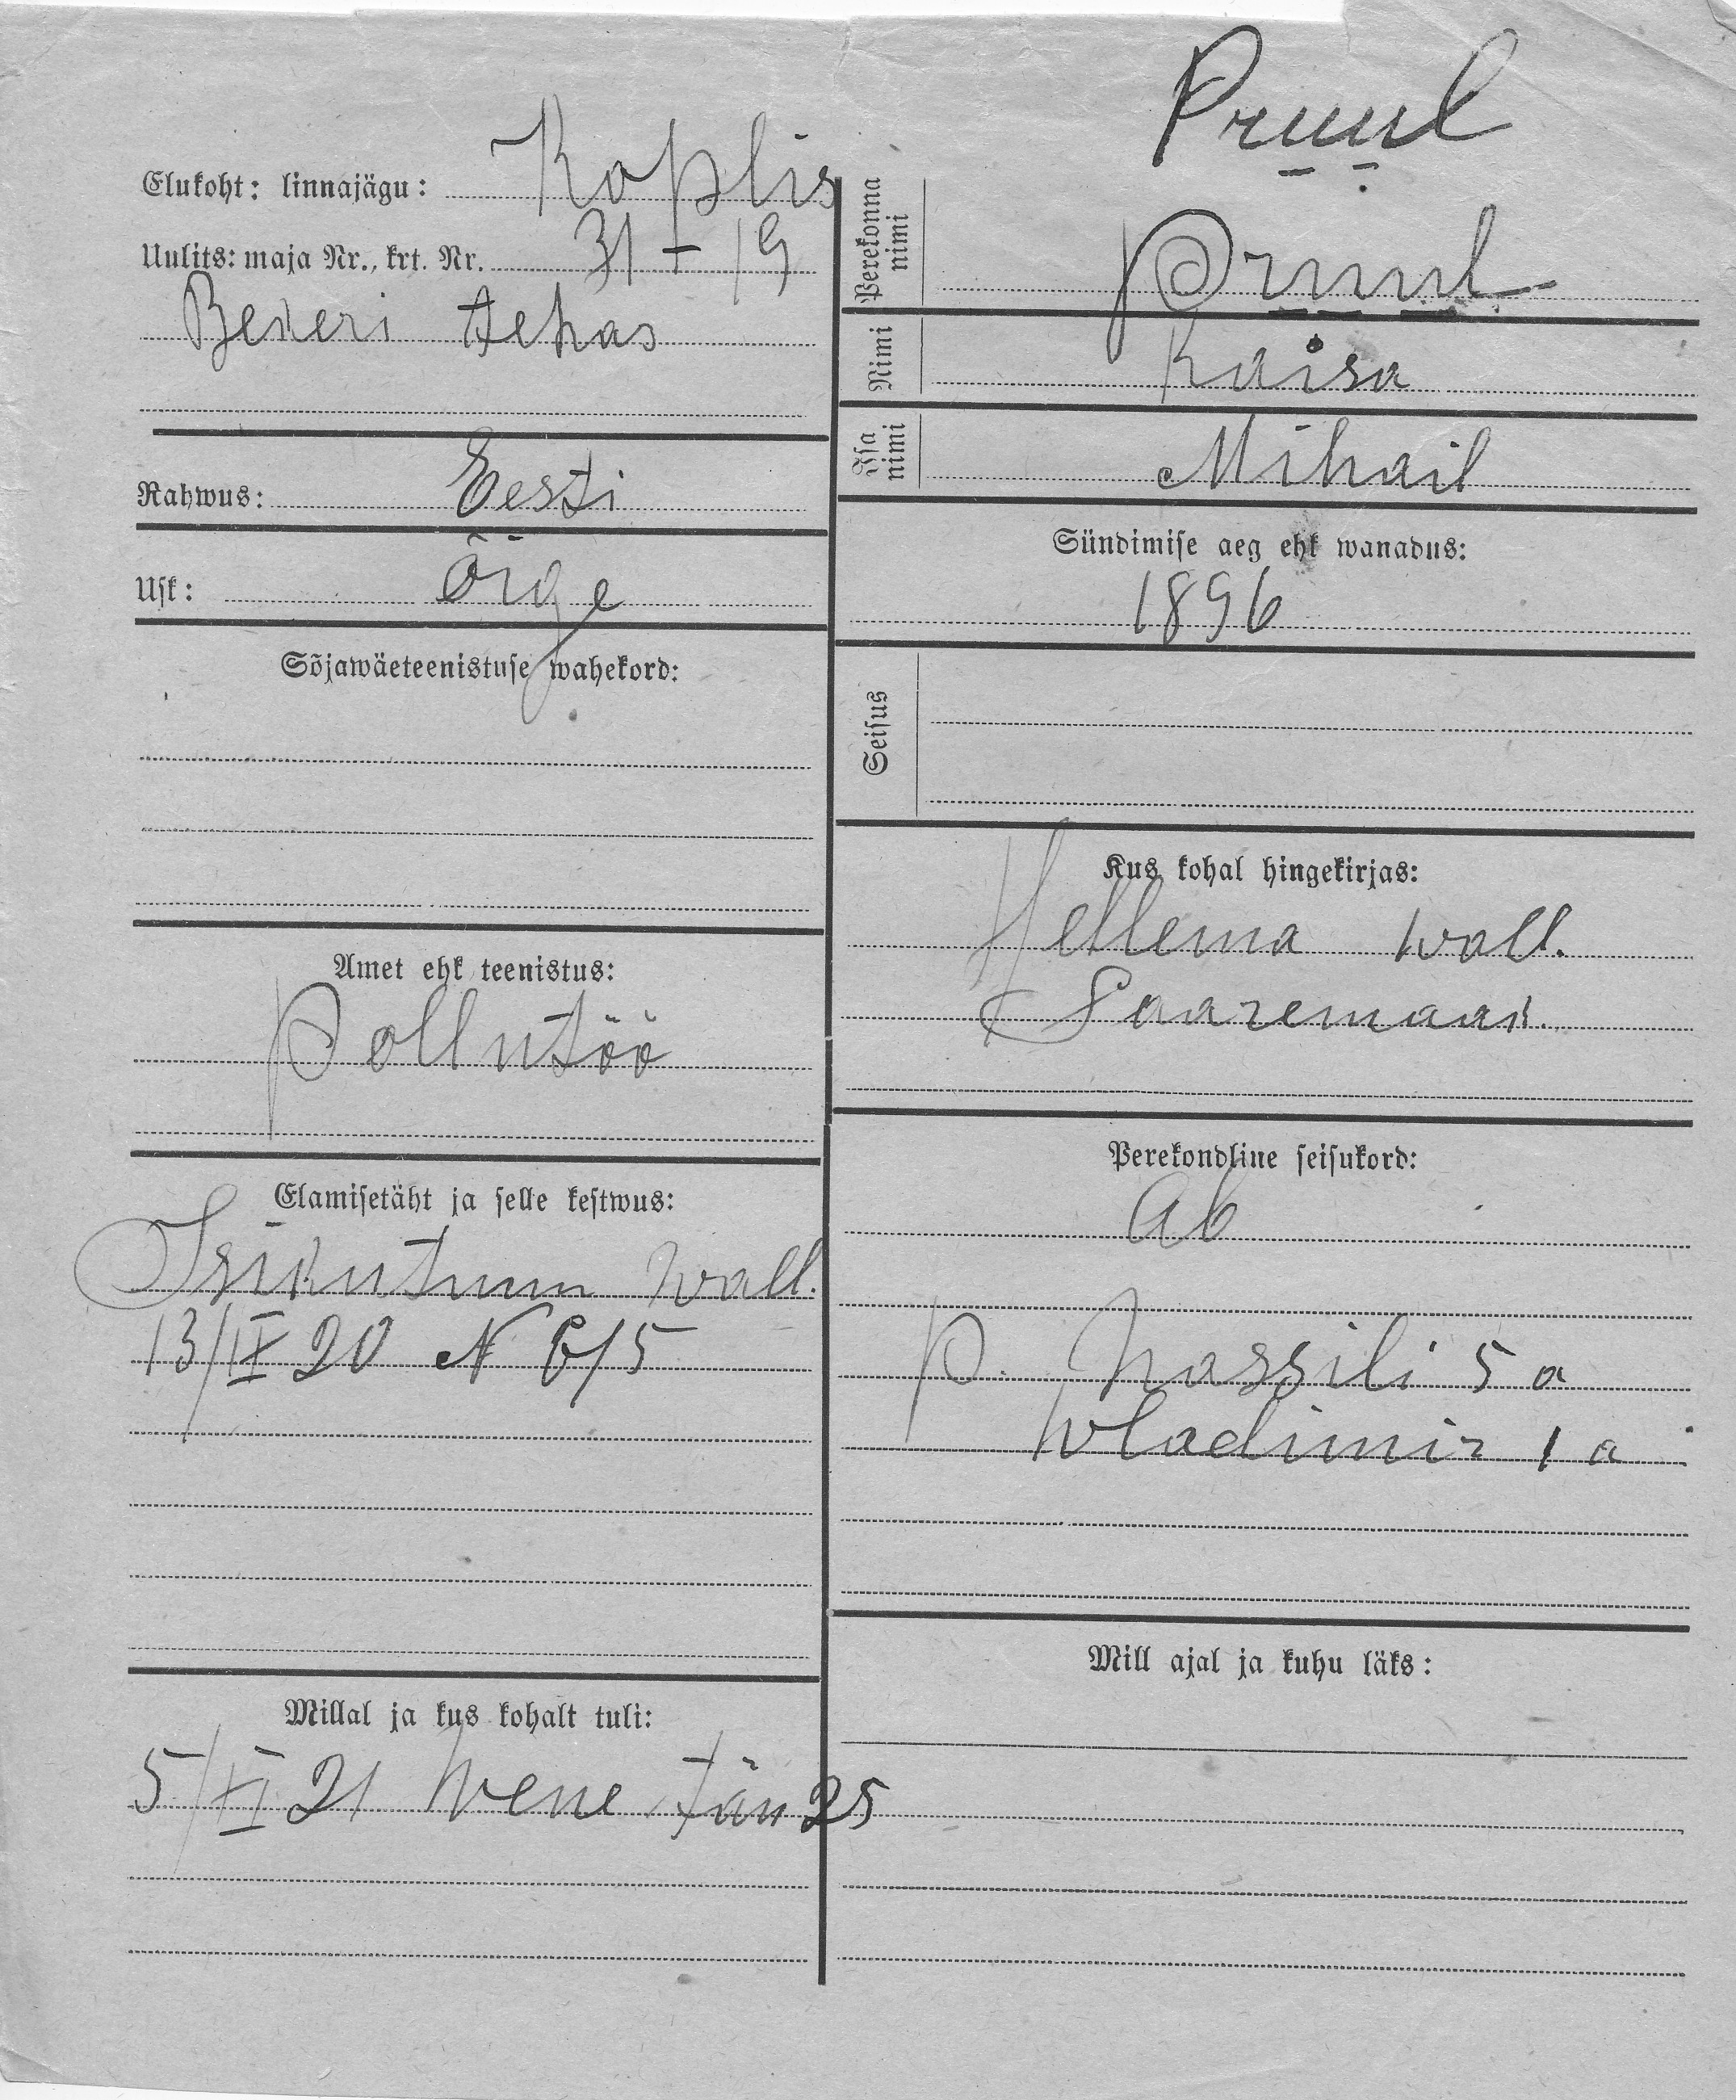 Pruul
Elukoht: linnajagu: Koplis
Uulits: maja Nr., krt. Nr. 31 – 19
Bekeri tehas
Rahwus: Eesti
Usk: Õige
Sõjawäeteenistuse wahekord:
Amet ehk teenistus:
Pollutöö
Elamisetäht ja selle kestwus:
Isikutunn wall.
13/IX 20 N 615
Millal ja kus kohalt tuli:
5/XI 21 Wene tän 25
Perekonna nimi Pruul
Nimi Kaisa
Isa nimi Mihail
Sündimise aeg ehk wanadus:
1896
Seisus
Kus kohal hingekirjas:
Hellema wall.
Saaremaal.
Perekondline seisukord:
Ab
p. Wassili 5 a
Wladimir 1 a
Mill ajal ja kuhu läks: